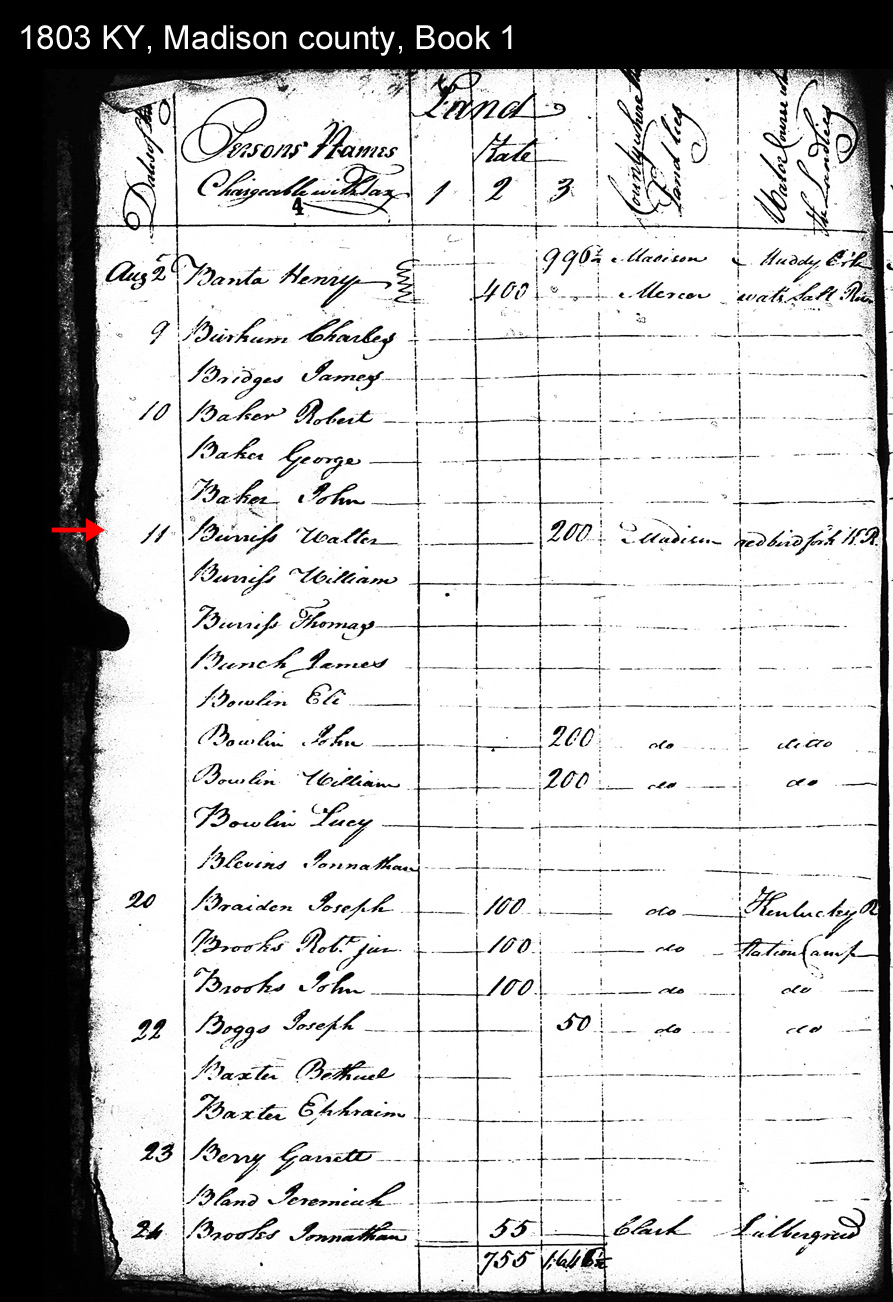 1803 KY, Madison county, Book 1
Land
Persons Names
Chargeable with Tax
4
Rate
1 2 3
County where the Land lies
Water Course on the Land lies
Augt 2 Banta Henry 996½ Madison Muddy Crk
400 Mercer wats Salt River
9 Burhum Charles
Bridges James
10 Baker Robert
Baker George
Baker John
11 Burriss Walter 200 Madison redbird fork K.R.
Burriss William
Burriss Thomas
Bunch James
Bowlin Eli
Bowlin John 200 do ditto
Bowlin William 200 do do
Bowlin Lucy
Blevins Jonnathan
20 Braiden Joseph 100 do Kentucky R
Brooks Robt. jur 100 do Station Camp
Brooks John 100 do do
22 Boggs Joseph 50 do do
Baxter Bethuel
Baxter Ephraim
23 Berry Garrett
Bland Jeremiah
24 Brooks Jonnathan 55 Clark Lulbegrud
755 1646½